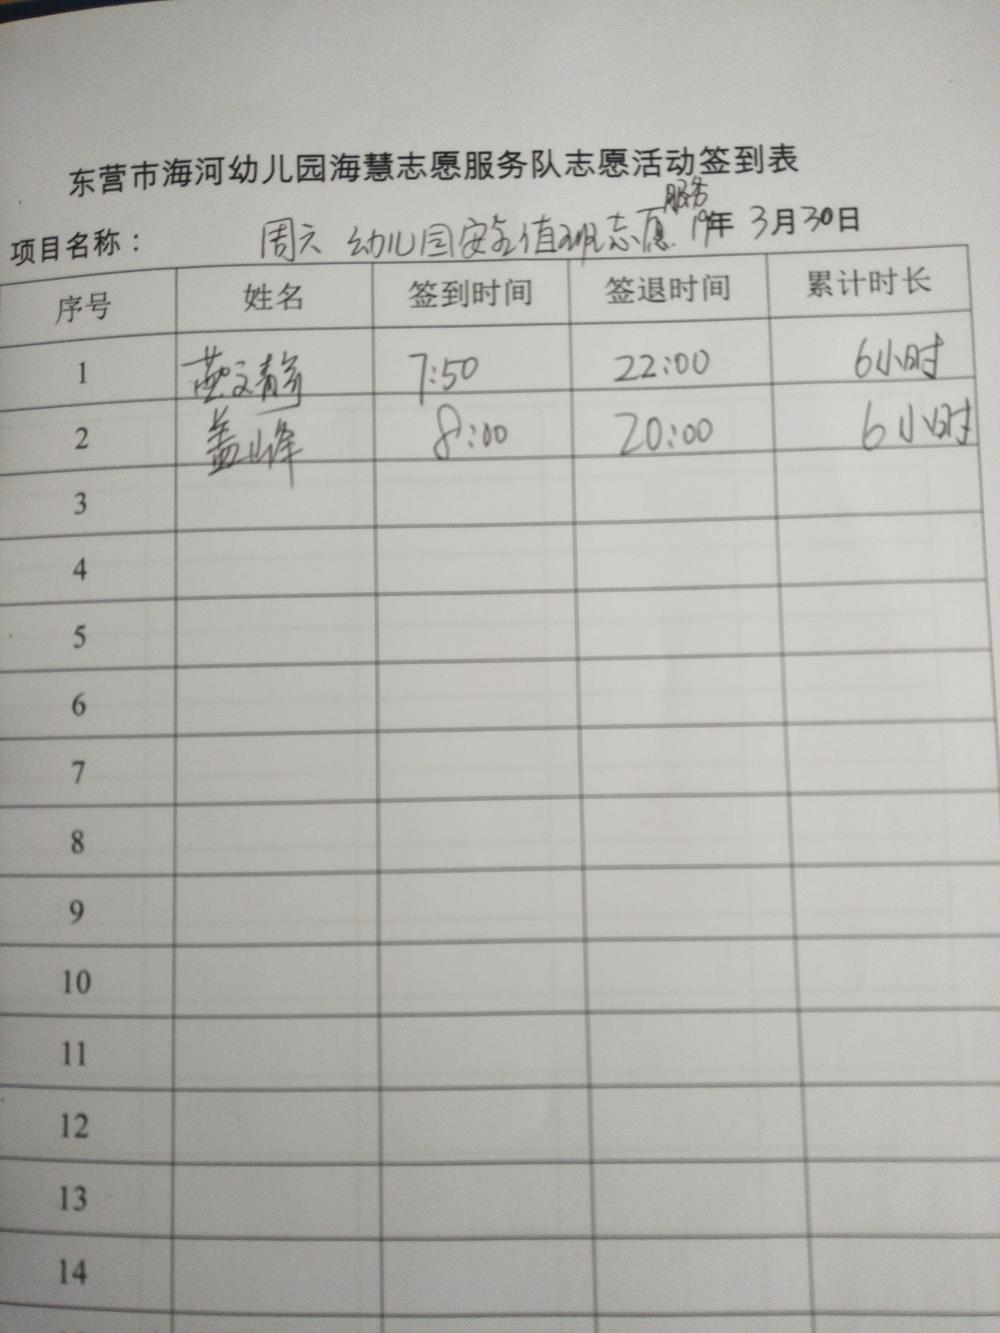 东营市海河幼儿园海慧志愿服务队志愿活动签到表
项目名称： 周六 幼儿园安全值班志愿服务 19年 3月30日
序号 姓名 签到时间 签退时间 累计时长
1 燕文静 7:50 22:00 6小时
2 盖山峰 8:00 20:00 6小时
3
4
5
6
7
8
9
10
11
12
13
14